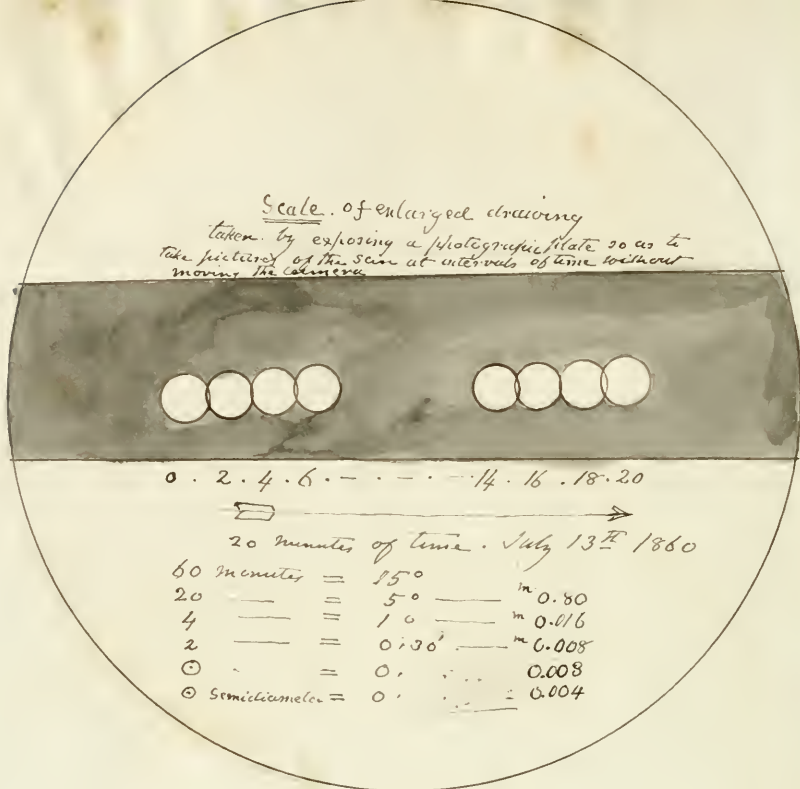 Scale. of enlarged drawing
taken. by exposing a photograpic plate so as to
take pictures of the Sun at intervals of time without
moving the camera
0 . 2 . 4 . 6 . — . - . - . - 14 . 16 . 18 . 20
20 minutes of time . July 13th 1860
60 minutes = 15°
20 — = 5° — m 0.80
4 — = 1° — m 0.016
2 — = 0°.30' — m 0.008
☉ . = 0. . .. 0.008
☉ Semidiameter = 0. . : 0.004